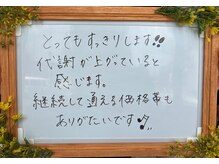 とってもすっきりします!!
代謝が上がっていると
感じます。
継続して通える価格帯も
ありがたいです!!